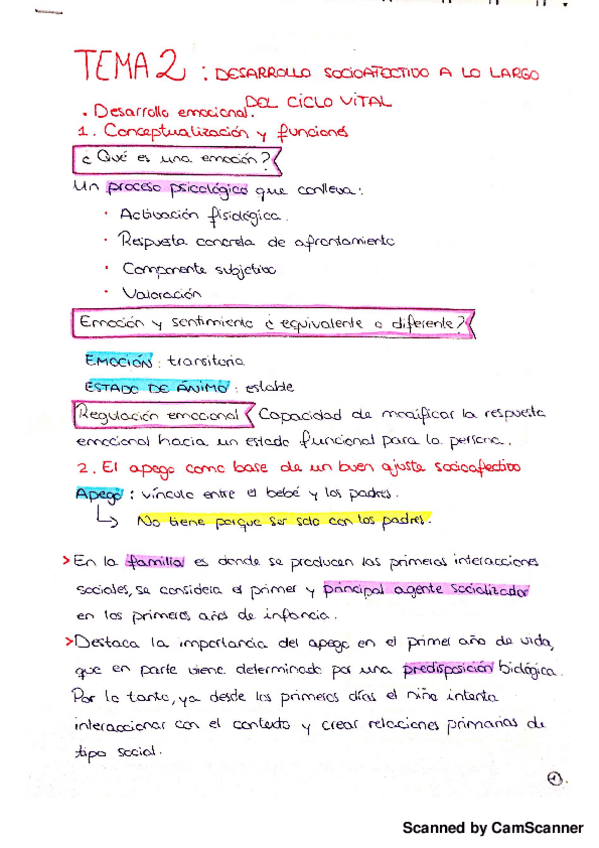 TEMA 2 : DESARROLLO SOCIOAFECTIVO A LO LARGO
DEL CICLO VITAL
. Desarrollo emocional.
1. Conceptualización y funciones
¿Qué es una emoción?
Un proceso psicológico que conlleva:
· Activación fisiológica.
· Respuesta concreta de afrontamiento
· Componente subjetivo
· Valoración
Emoción y sentimiento ¿equivalente o diferente?
EMOCIÓN: transitoria
ESTADO DE ÁNIMO: estable
Regulación emocional Capacidad de modificar la respuesta
emocional hacia un estado funcional para la persona.
2. El apego como base de un buen ajuste socioafectivo
Apego: vínculo entre el bebé y los padres.
↳ No tiene porque ser solo con los padres.
> En la familia es donde se producen las primeras interacciones
sociales, se considera el primer y principal agente socializador
en los primeros años de infancia.
> Destaca la importancia del apego en el primer año de vida,
que en parte viene determinado por una predisposición biológica.
Por lo tanto, ya desde los primeros días el niño intenta
interaccionar con el contexto y crear relaciones primarias de
tipo social.
1.
Scanned by CamScanner